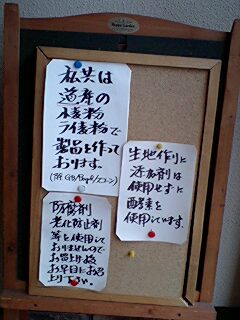 私共は
道産の
小麦粉
ライ麦粉で
製品を作って
おります。
生地作りに
添加剤は
使用せずに
酵素を
使用しています。
防腐剤
老化防止剤
等を使用して
おりませんので
お買上げ後
お早目にお召
上り下さい。